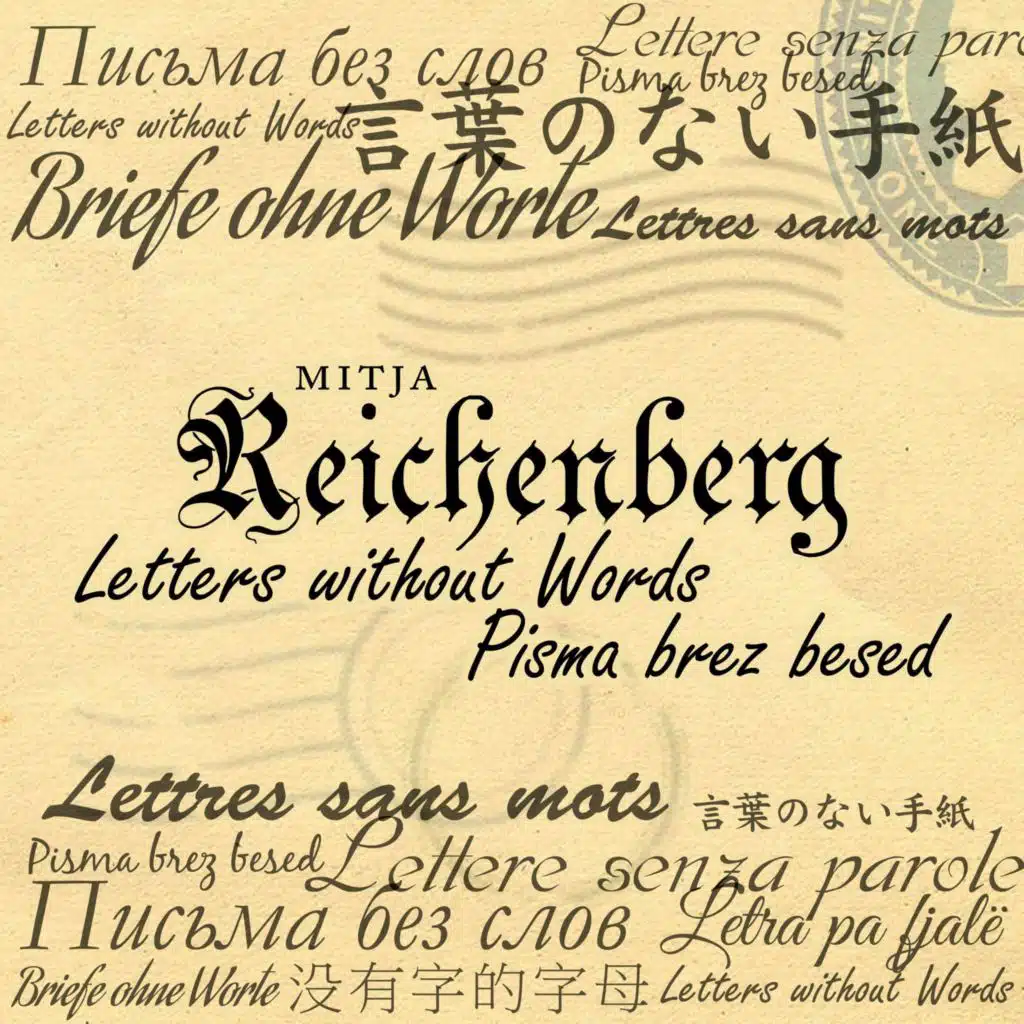 Письма без слов
Lettere senza paro
Pisma brez besed
Letters without Words
言葉のない手紙
Briefe ohne Worte
Lettres sans mots
MITJA
Reichenberg
Letters without Words
Pisma brez besed
Lettres sans mots
言葉のない手紙
Pisma brez besed
Lettere senza parole
Письма без слов
Letra pa fjalë
Briefe ohne Worte
没有字的字母
Letters without Words